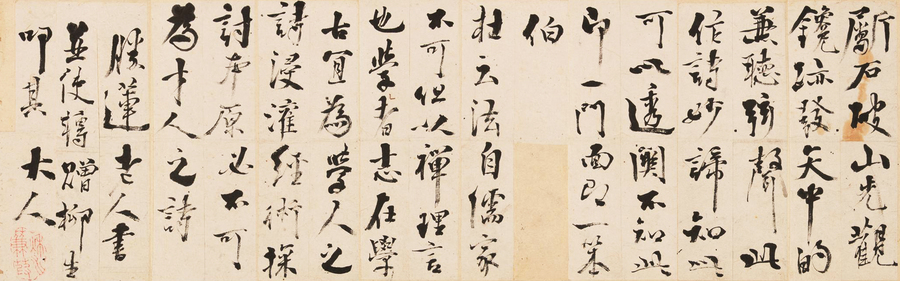 斸石破山先觀
鑱迹發矢中的
兼聽弦聲此
作詩妙諦知此
可以透關不知此
即一門面即一笨
伯
杜云法自儒家
不可但以禪理言
也學者志在學
古宜為學人之
詩浸灌經術探
討本原必不可
為才人之詩
勝蓮老人書
並使轉贈柳生
叩其大人